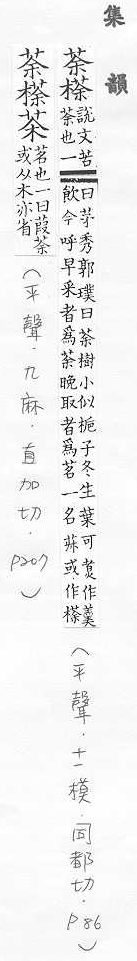 集韻
荼𣘻說文苦荼也一曰茅秀郭璞曰荼樹小似梔子冬生葉可煑作羹飲今呼早采者爲荼晚取者爲茗一名荈或作𣘻(平聲.十一模.同都切.P86)
荼𣘻茶茗也一曰葭荼或从木亦省(平聲.九麻.直加切.P207)